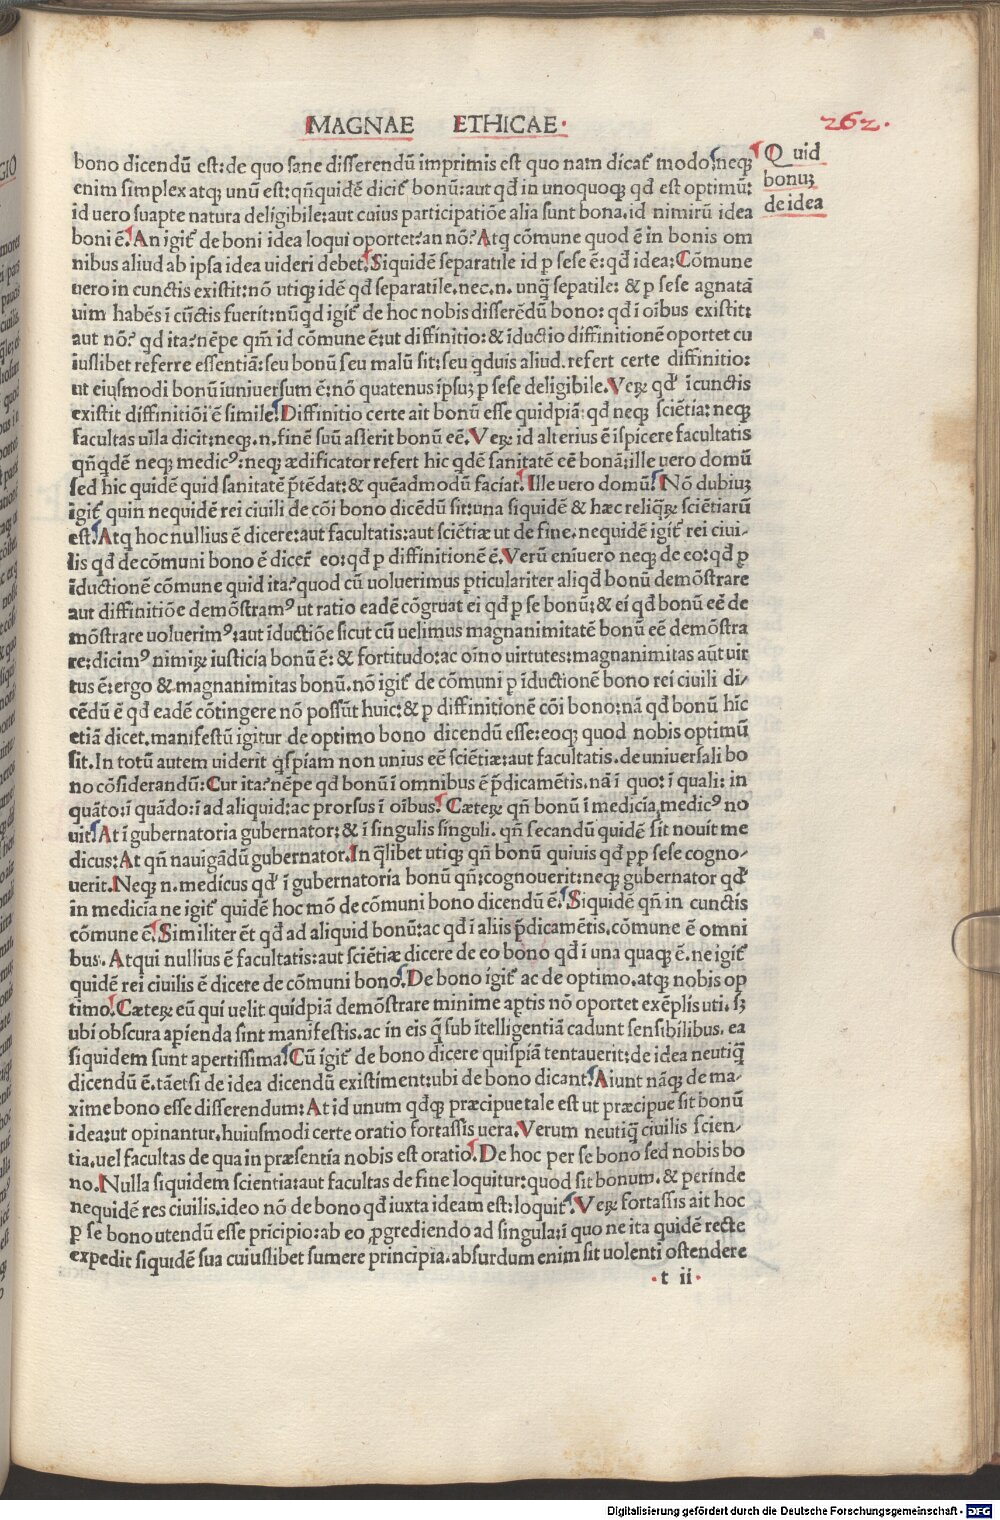 MAGNAE ETHICAE·
262·
Quid
bonuꝫ
de idea
bono dicendū est: de quo sane disserendū imprimis est quo nam dicat᷑ modo. neqꝫ
enim simplex atqꝫ unū est: qñ quidē dicit᷑ bonū: aut qđ in unoquoqꝫ qđ est optimū:
id uero suapte natura deligibile: aut cuius participatiōe alia sunt bona. id nimirū idea
boni ē. An igit᷑ de boni idea loqui oportet? an nō? Atq cōmune quod ē in bonis om
nibus aliud ab ipsa idea uideri debet. Siquidē separatile id p sese ē: qđ idea: Cōmune
uero in cunctis existit: nō utiqꝫ idē qđ separatile. nec. n. unq̄ sepatile: & p sese agnatā
uim habēs ī cūctis fuerit: nūqđ igit᷑ de hoc nobis disserēdū bono: qđ ī oībus existit:
aut nō? qđ ita? nēpe qm̄ id cōmune ē: ut diffinitio: & īductio diffinitionē oportet cu
iuslibet referre essentiā: seu bonū seu malū sit: seu qđuis aliud. refert certe diffinitio:
ut eiusmodi bonū ī uniuersum ē: nō quatenus ipsuꝫ p sese deligibile. Veꝝ qđ ī cunctis
existit diffinitiōi ē simile. Diffinitio certe ait bonū esse quidpiā: qđ neqꝫ sciētia: neqꝫ
facultas ulla dicit: neqꝫ. n. finē suū asserit bonū eē. Veꝝ id alterius ē ispicere facultatis
qñqđē neqꝫ medicꝰ: neqꝫ ædificator refert hic qđē sanitatē eē bonā: ille uero domū
sed hic quidē quid sanitatē p̄tēdat: & quēadmodū faciat. Ille uero domū. Nō dubiuꝫ
igit᷑ quin nequidē rei ciuili de cōi bono dicēdū sit: una siquidē & hæc reliqꝝ sciētiarū
est. Atq hoc nullius ē dicere: aut facultatis: aut sciētiæ ut de fine. nequidē igit᷑ rei ciui-
lis qđ de cōmuni bono ē dicer̄ eo: qđ p diffinitionē ē. Verū eniuero neqꝫ de eo: qđ p
īductionē cōmune quid ita? quod cū uoluerimus pticulariter aliqđ bonū demōstrare
aut diffinitiōe demōstramꝰ ut ratio eadē cōgruat ei qđ p se bonū: & ei qđ bonū eē de
mōstrare uoluerimꝰ: aut īductiōe sicut cū uelimus magnanimitatē bonū eē demōstra
re: dicimꝰ nimiꝝ iusticia bonū ē: & fortitudo: ac oīno uirtutes: magnanimitas aūt uir
tus ē: ergo & magnanimitas bonū. nō igit᷑ de cōmuni p īductionē bono rei ciuili di-
cēdū ē qđ eadē cōtingere nō possūt huic: & p diffinitionē cōi bono: nā qđ bonū hic
etiā dicet. manifestū igitur de optimo bono dicendū esse: eoqꝫ quod nobis optimū
sit. In totū autem uiderit qspiam non unius eē sciētiæ: aut facultatis. de uniuersali bo
no cōsiderandū: Cur ita? nēpe qđ bonū ī omnibus ē p̄dicamētis. nā ī quo: ī quali: in
quāto: ī quādo: ī ad aliquid: ac prorsus ī oībus. Cæteꝝ qñ bonū ī medicīa medicꝰ no
uit. At ī gubernatoria gubernator: & ī singulis singuli. qñ secandū quidē sit nouit me
dicus: At qñ nauigādū gubernator. In q̄libet utiqꝫ qñ bonū quiuis qđ pp sese cogno-
uerit. Neqꝫ n. medicus qđ ī gubernatoria bonū qñ: cognouerit: neqꝫ gubernator qđ
in medicīa ne igit᷑ quidē hoc mō de cōmuni bono dicendū ē. Siquidē qñ in cunctis
cōmune ē. Similiter ēt qđ ad aliquid bonū: ac qđ ī aliis p̄dicamētis. cōmune ē omni
bus. Atqui nullius ē facultatis: aut sciētiæ dicere de eo bono qđ ī una quaqꝫ ē. ne igit᷑
quidē rei ciuilis ē dicere de cōmuni bono. De bono igit᷑ ac de optimo. atqꝫ nobis op
timo. Cæteꝝ eū qui uelit quidpiā demōstrare minime aptis nō oportet exēplis uti. sꝫ
ubi obscura apienda sint manifestis. ac in eis q̄ sub ītelligentiā cadunt sensibilibus. ea
siquidem sunt apertissima. Cū igit᷑ de bono dicere quispiā tentauerit: de idea neutiq̄
dicendū ē. tāetsi de idea dicendū existiment: ubi de bono dicant. Aiunt nāqꝫ de ma-
xime bono esse disserendum: At id unum qđqꝫ præcipue tale est ut præcipue sit bonū
idea: ut opinantur. huiusmodi certe oratio fortassis uera. Verum neutiq̄ ciuilis scien-
tia. uel facultas de qua in præsentia nobis est oratio. De hoc per se bono sed nobis bo
no. Nulla siquidem scientia: aut facultas de fine loquitur: quod sit bonum. & perinde
nequidē res ciuilis. ideo nō de bono qđ iuxta ideam est: loquit᷑. Veꝝ fortassis ait hoc
p se bono utendū esse prīcipio: ab eo ꝓgrediendo ad singula: ī quo ne ita quidē recte
expedit siquidē sua cuiuslibet sumere principia. absurdum enim sit uolenti ostendere
·t ii·
Digitalisierung gefördert durch die Deutsche Forschungsgemeinschaft - DFG